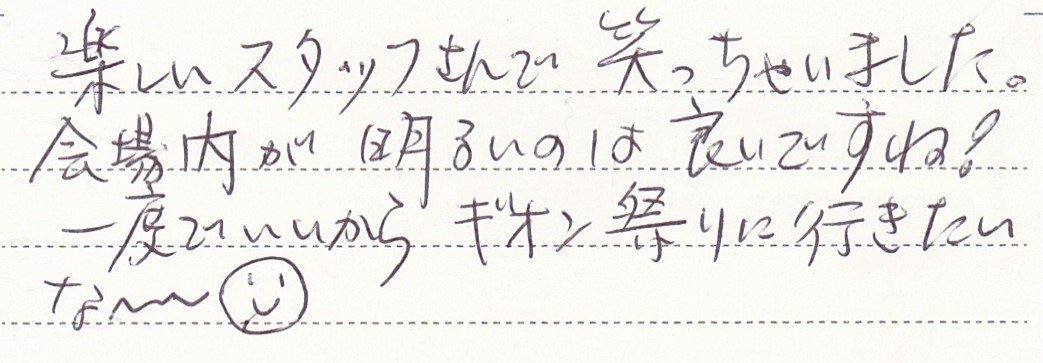 楽しいスタッフさんで笑っちゃいました。
会場内が明るいのは良いですね!
一度でいいからギオン祭りに行きたい
な〜〜☺